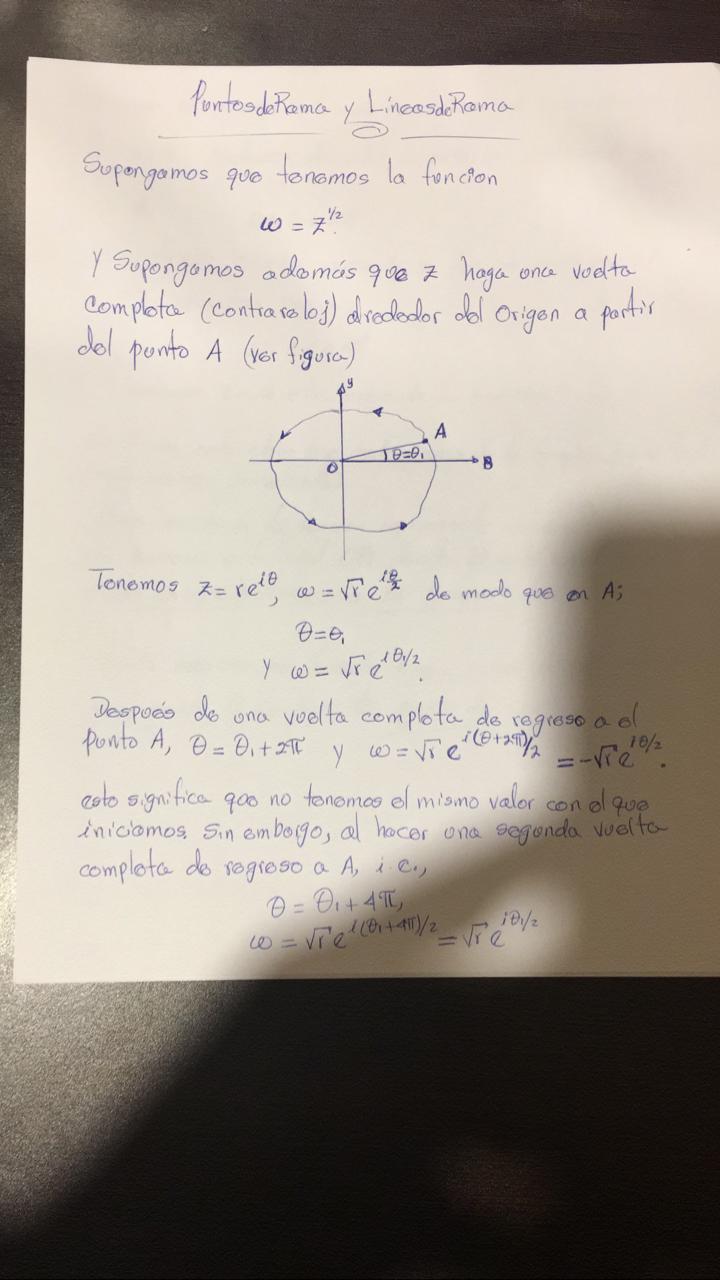 Puntos de Rama y Líneas de Rama
Supongamos que tenemos la funcion
ω = z^{1/2}.
Y Supongamos además que z haga una vuelta
completa (contrareloj) alrededor del Origen a partir
del punto A (ver figura)
y
A
θ=θ₁
O
B
Tenemos z = re^{iθ}, ω = √r e^{iθ/2} de modo que en A;
θ=θ₁
Y ω = √r e^{iθ₁/2}.
Después de una vuelta completa de regreso a el
punto A, θ = θ₁ + 2π y ω = √r e^{i(θ+2π)/2} = -√r e^{iθ/2}.
esto significa que no tenemos el mismo valor con el que
iniciamos. Sin embargo, al hacer una segunda vuelta
completa de regreso a A, i.e.,
θ = θ₁ + 4π,
ω = √r e^{i(θ₁+4π)/2} = √r e^{iθ₁/2}